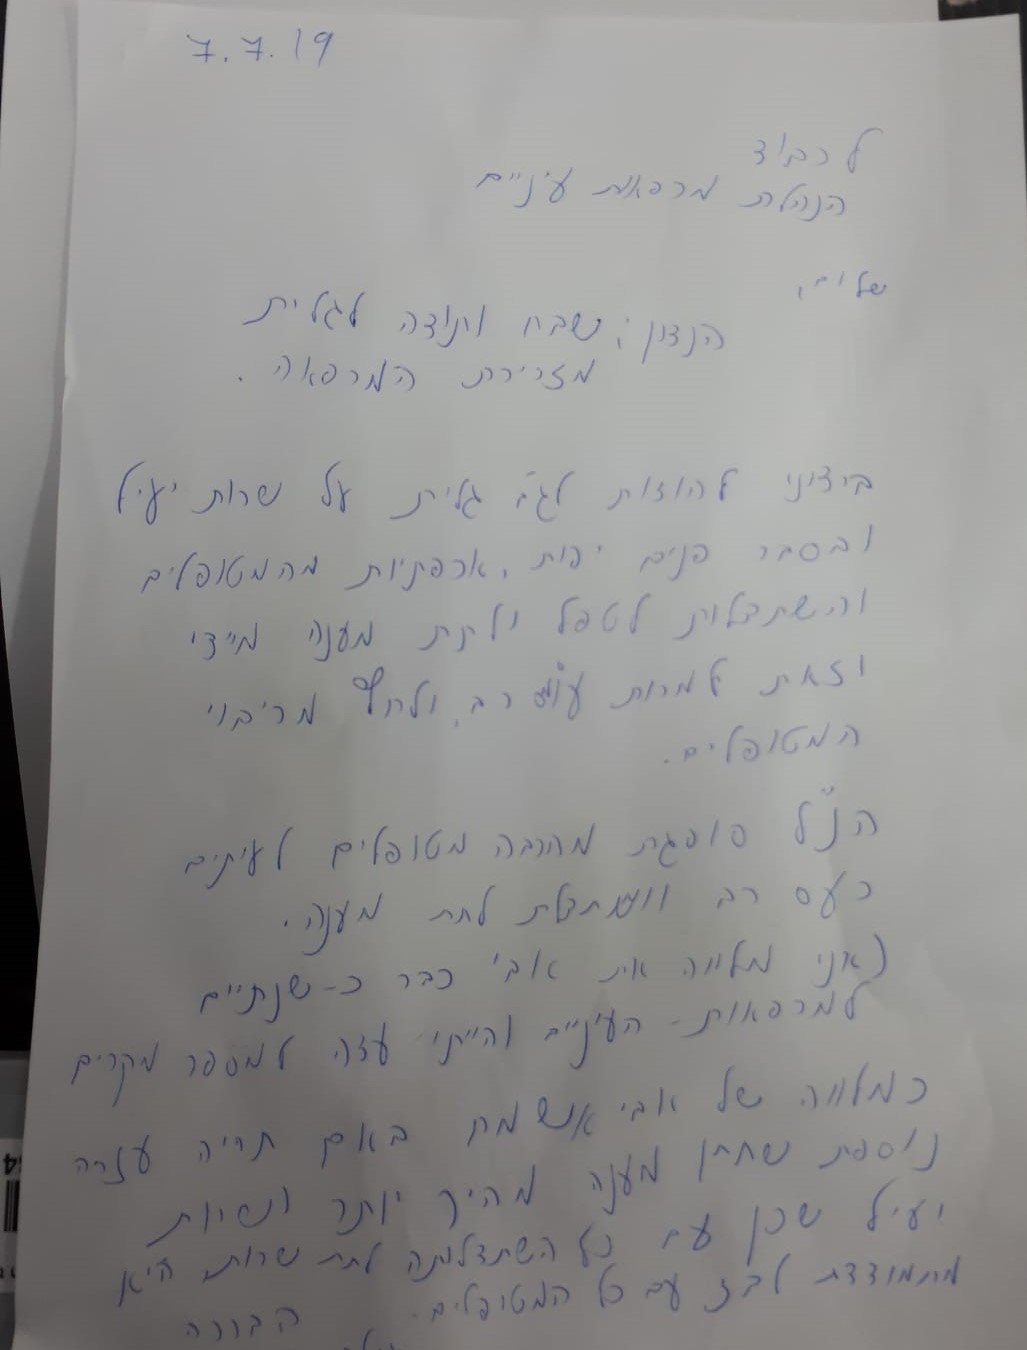 7.7.19
לכבוד
הנהלת מרפאות עיניים
שלום,
הנדון: שבח ותודה לגלית
מזכירת המרפאה.
ברצוני להודות לגב' גלית על שרות יעיל
ובסבר פנים יפות, אכפתיות מהמטופלים
והשתדלות לטפל ולתת מענה מיידי
וזאת למרות עומס רב, ולחץ מריבוי
המטופלים.
הנ"ל סופגת מהרבה מטופלים לעיתים
כעס רב ומשתדלת לתת מענה.
(אני מלווה את אבי כבר כ-שנתיים
למרפאות- העיניים והייתי עדה למספר מקרים
כמלווה של אבי אשמח באם תהיה עזרה
נוספת שתתן מענה מהיר יותר ושרות
יעיל שכן עם כל השתדלותה לתת שרות, היא
מתמודדת לבד עם כל המטופלים.
בברכה